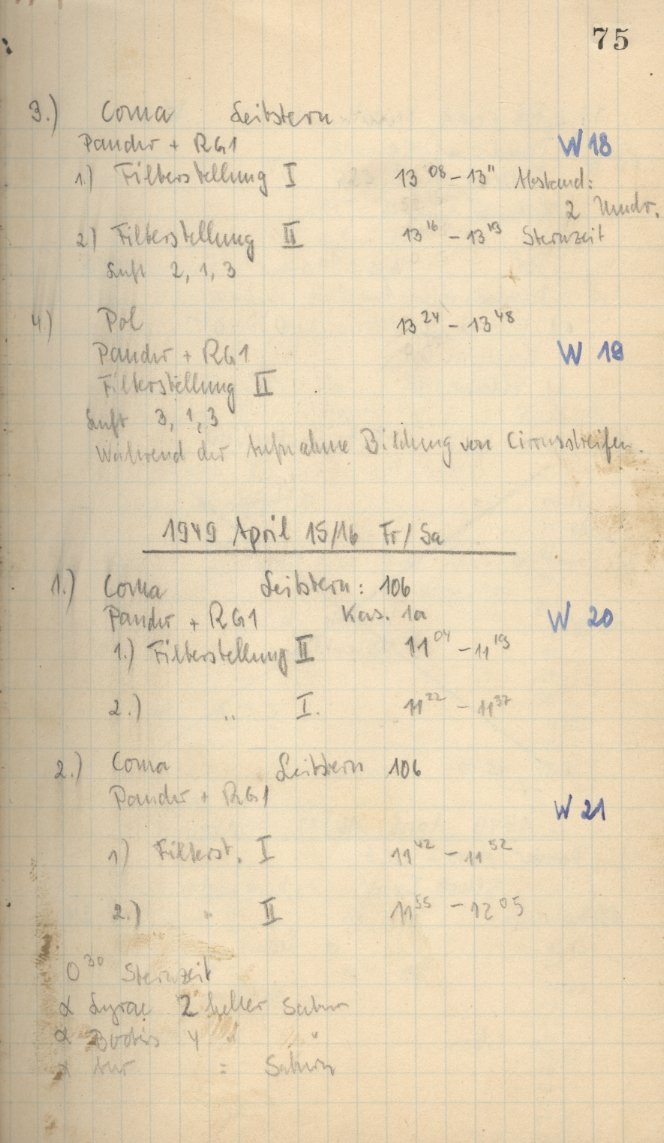 75
3.) Coma Leitstern
Pander + RG1 W 18
1.) Filterstellung I 13 08 – 13 11 Abstand:
2 Umdr.
2) Filterstellung II 13 16 – 13 19 Sternzeit
Luft 2, 1, 3
4) Pol 13 24 – 13 48
Pander + RG1 W 19
Filterstellung II
Luft 3, 1, 3
Während der Aufnahme Bildung von Cirrusstreifen.
1949 April 15/16 Fr/Sa
1.) Coma Leitstern: 106
Pander + RG1 Kas. 1a W 20
1.) Filterstellung II 11 04 – 11 19
2.) " I. 11 22 – 11 37
2.) Coma Leitstern 106
Pander + RG1
W 21
1) Filterst. I 11 42 – 11 52
2.) " II 11 55 – 12 05
0 30 Sternzeit
α Lyrae 2 heller Saturn
α Bootis 4 " "
α Aur = Saturn